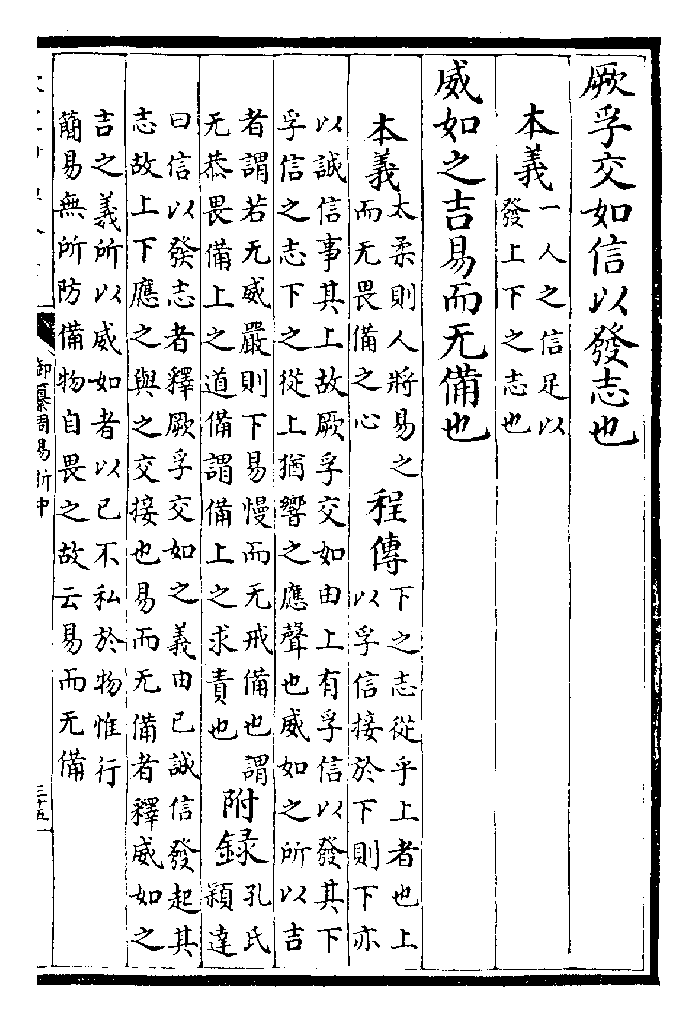 厥孚交如信以發志也
本義一人之信足以
發上下之志也
威如之吉易而无備也
本義太柔則人將易之
而无畏備之心
程傳下之志從乎上者也上
以孚信接於下則下亦
以誠信事其上故厥孚交如由上有孚信以發其下
孚信之志下之從上猶響之應聲也威如之所以吉
者謂若无威嚴則下易慢而无戒備也謂
无恭畏備上之道備謂備上之求責也
附録孔氏
穎達
曰信以發志者釋厥孚交如之義由已誠信發起其
志故上下應之與之交接也易而无備者釋威如之
吉之義所以威如者以已不私於物惟行
簡易無所防備物自畏之故云易而无備
御纂周易折中
三十五